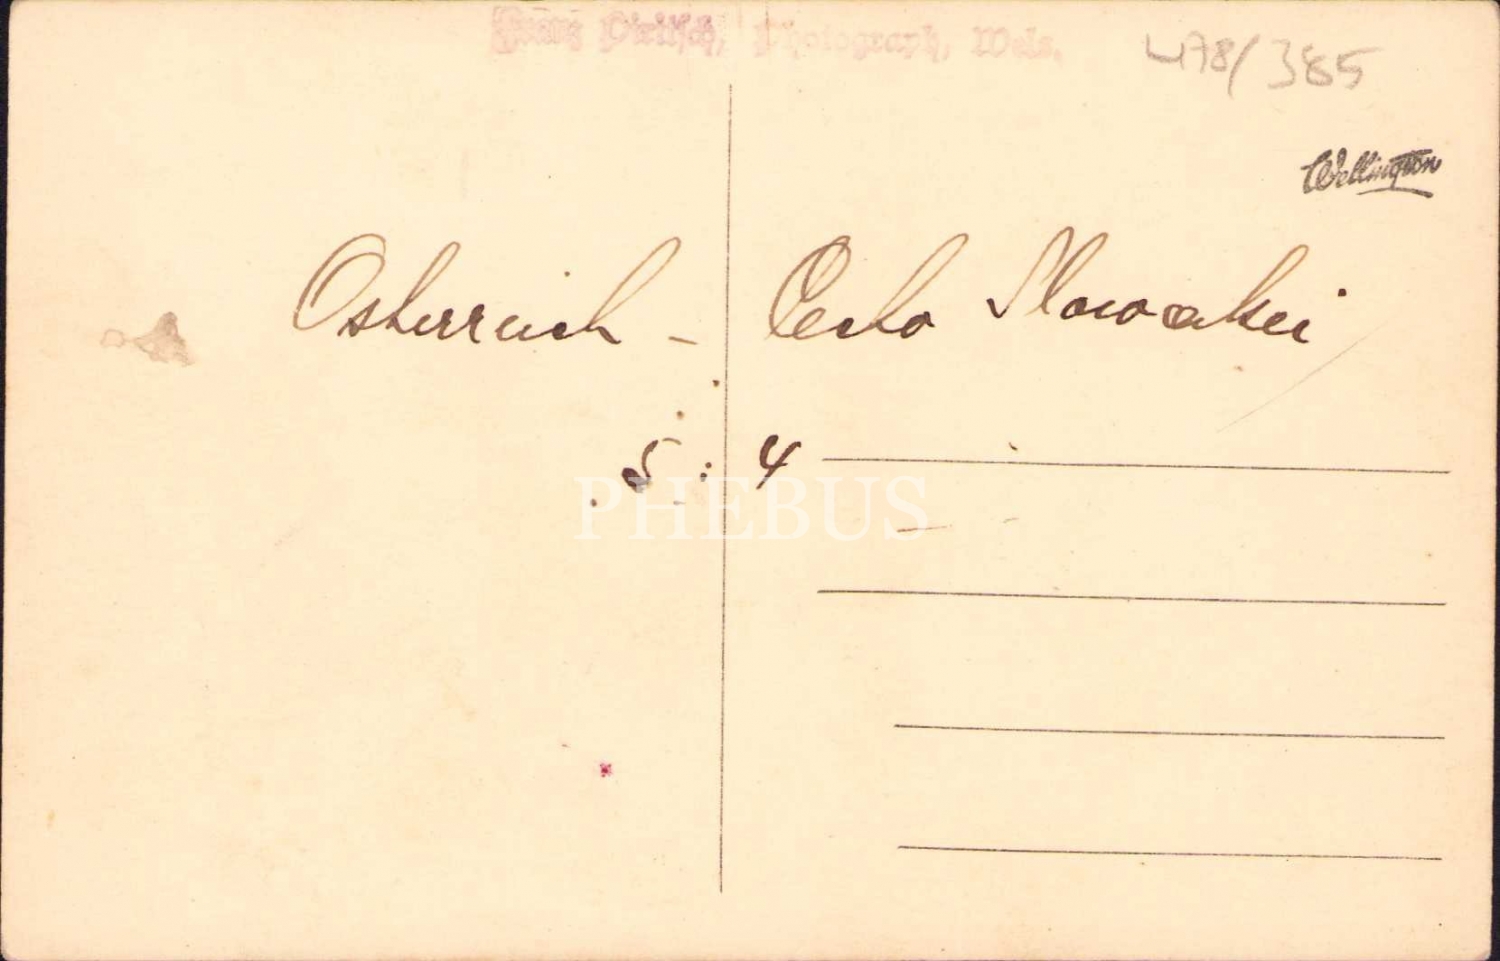 Franz Piritsch, Photograph, Wels.
478/385
Wellington
Österreich - Cecho Slowakei
5 : 4
PHEBUS